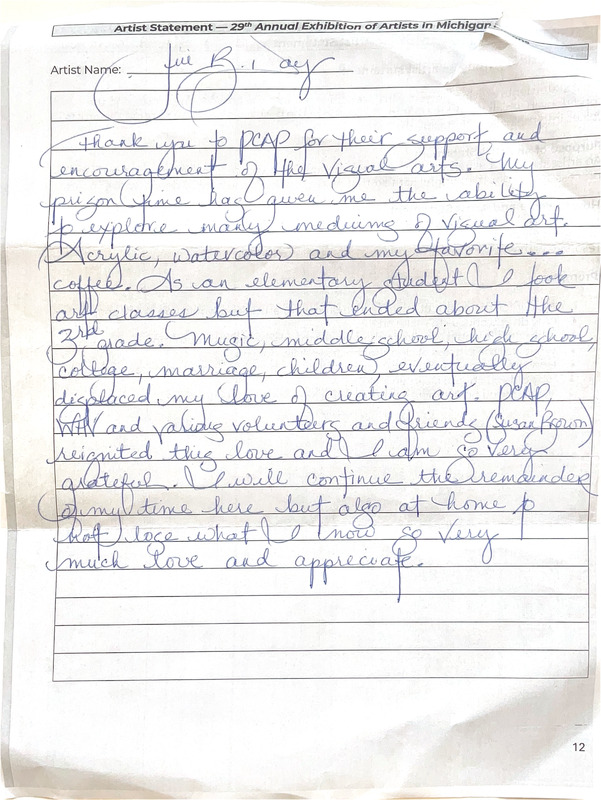 Artist Statement — 29th Annual Exhibition of Artists in Michigan
Artist Name:
Thank you to PCAP for their support and
encouragement of the visual arts. My
prison time has given me the ability
to explore many mediums of visual art.
Acrylic, watercolor and my favorite....
coffee. As an elementary student I took
art classes but that ended about the
3rd grade. Music, middle school, high school,
college, marriage, children, eventually
displaced my love of creating art. PCAP,
WHV and various volunteers and friends (Susan Brown)
reignited this love and I am so very
grateful. I will continue the remainder
of my time here but also at home to
not lose what I now so very
much love and appreciate.
12